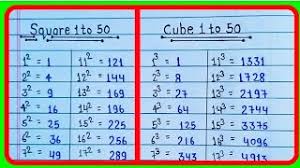 Square 1 to 50
1² = 1 11² = 121
2² = 4 12² = 144
3² = 9 13² = 169
4² = 16 14² = 196
5² = 25 15² = 225
6² = 36 16² = 256
7² = 49 17² = 289
Cube 1 to 50
1³ = 1 11³ = 1331
2³ = 8 12³ = 1728
3³ = 27 13³ = 2197
4³ = 64 14³ = 2744
5³ = 125 15³ = 3375
6³ = 216 16³ = 4096
7³ = 343 17³ = 4913